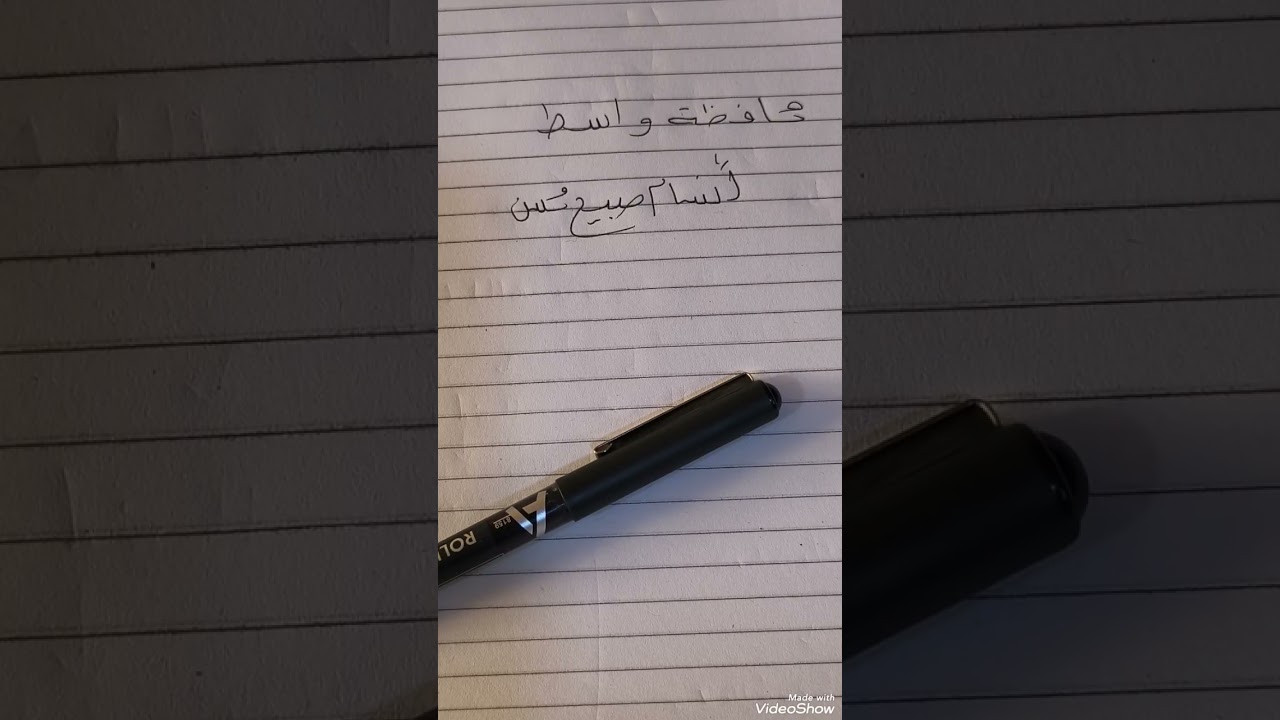 محافظة واسط
أبتسام صبيح محسن
ROLL
Made with
VideoShow